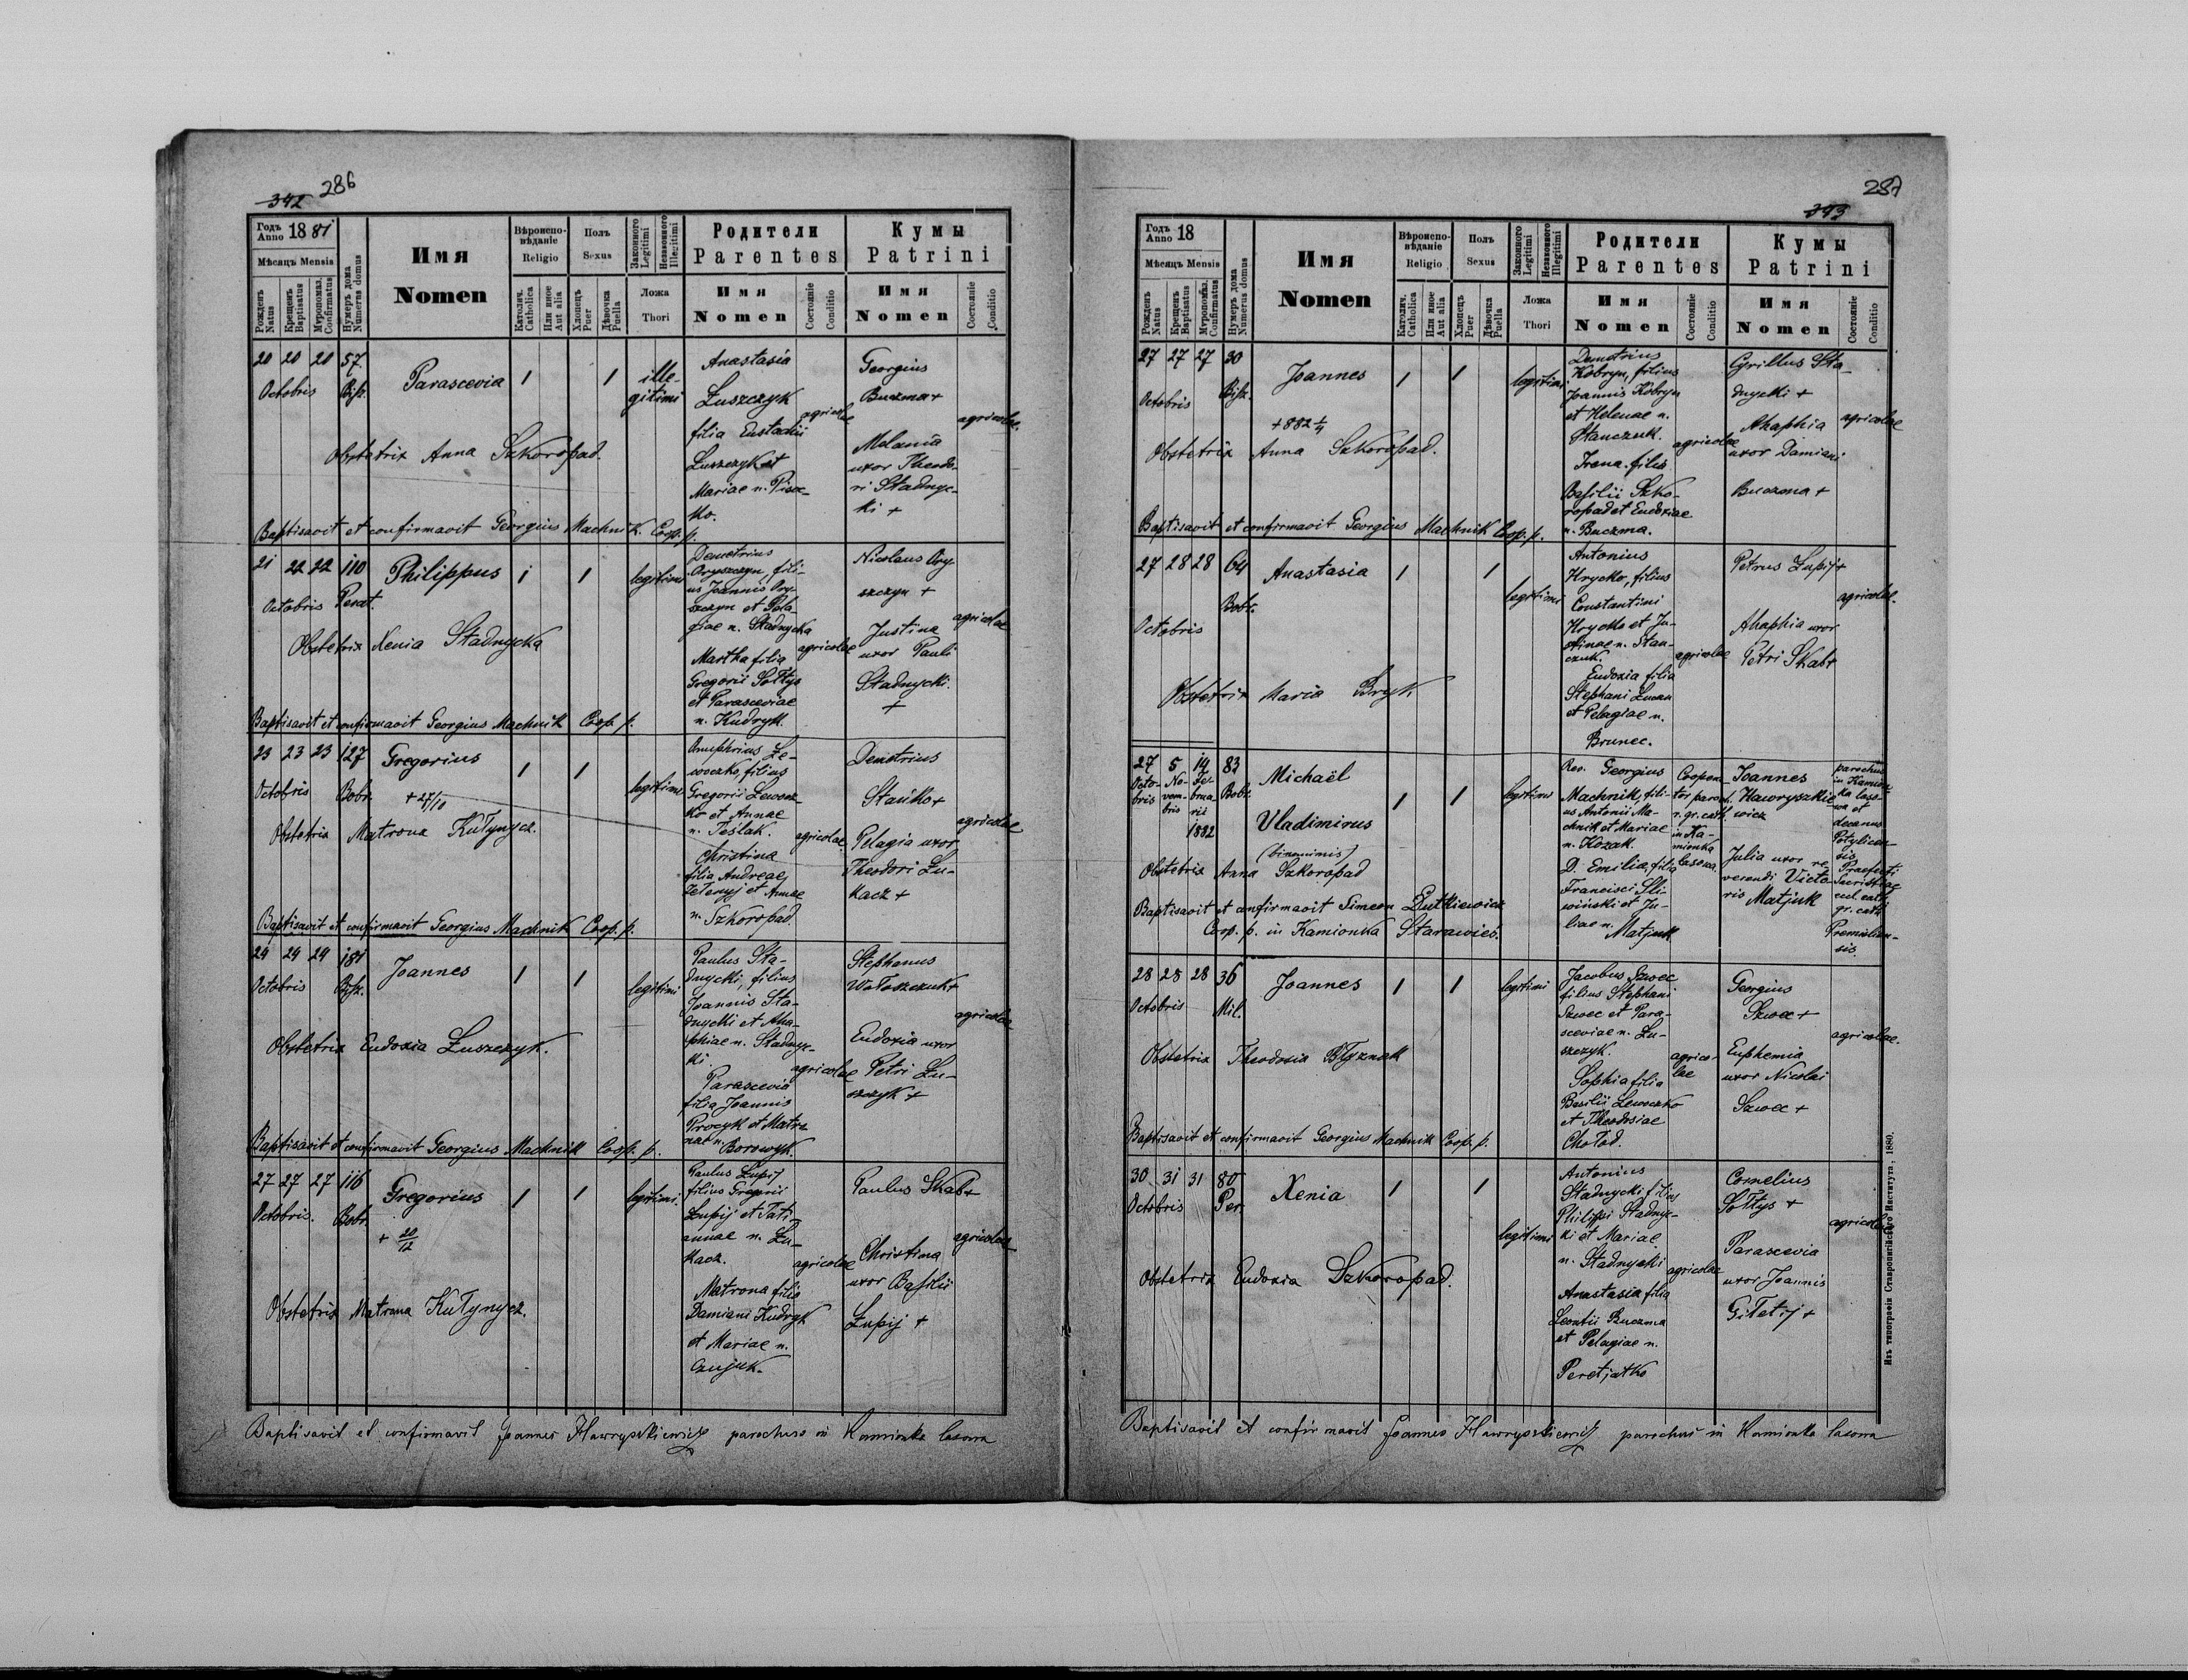 342 286
Годъ Anno 1881
Мѣсяцъ Mensis
Рожденъ Natus
Крещенъ Baptisatus
Мѵропомаз. Confirmatus
Нумеръ дома Numerus domus
Имя
Nomen
Вѣроисповѣданіе Religio
Католич. Catholica
Или иное Aut alia
Полъ Sexus
Хлопецъ Puer
Дѣвочка Puella
Законного Legitimi
Незаконного Illegitimi
Ложа Thori
Родители
Parentes
Имя Nomen
Состояніе Conditio
Кумы
Patrini
Имя Nomen
Состояніе Conditio
20 20 20 57.
Octobris Bisz.
Parascevia
1 1
ille-
gitimi
Anastasia
Łuszczyk
filia Eustachii
Łuszczyk et
Mariae n. Pisec-
ko.
agricolae
Georgius
Buczma +
Melania
uxor Theodo-
ri Stadnyc-
ki +
agricolae.
Obstetrix Anna Szkoropad.
Baptisavit et confirmavit Georgius Machnik. Coop. p.
21 22 22 110
Octobris Perat.
Philippus
1 1
legitimi
Demetrius
Oryszczyn, fili-
us Joannis Ory-
szczyn et Pela-
giae n. Stadnycka
Martha filia
Gregorii Sołtys
et Parasceviae
n. Kudryk.
agricolae
Nicolaus Ory-
szczyn +
Justina
uxor Pauli
Stadnycki.
+
agricolae
Obstetrix Xenia Stadnycka
Baptisavit et confirmavit Georgius Machnik Coop. p.
23 23 23 127
Octobris Bobr.
Gregorius
+ 27/10
1 1
legitimi
Onuphrius Le-
woczko, filius
Gregorii Lewocz-
ko et Annae
n. Teślak.
Christina
filia Andreae
Zełenyj et Annae
n. Szkoropad.
agricolae
Demetrius
Stańko +
Pelagia uxor
Theodori Łu-
kacz +
agricolae
Obstetrix Matrona Kułynycz.
Baptisavit et confirmavit Georgius Machnik Coop. p.
24 24 24 181
Octobris Bisz.
Joannes
1 1
legitimi
Paulus Sta-
dnycki, filius
Joannis Sta-
dnycki et Aha-
phiae n. Stadnyc-
ki.
Parascevia
filia Joannis
Procyk et Matro-
nae n.
Borowyk.
agricolae
Stephanus
Wołoszczuk +
Eudoxia uxor
Petri Łu-
szczyk +
agricolae
Obstetrix Eudoxia Łuszczyk.
Baptisavit et confirmavit Georgius Machnik Coop. p.
27 27 27 116
Octobris. Bobr.
Gregorius
+ 20/12
1 1
legitimi.
Paulus Łupij
filius Gregorii
Łupij et Tati-
annae n. Łu-
kacz.
Matrona filia
Damiani Kudryk
et Mariae n.
Czujuk.
agricolae
Paulus Skab +
Christina
uxor Basilii
Łupij +
agricolae
Obstetrix Matrona Kułynycz.
Baptisavit et confirmavit Joannes Hawryszkiewicz parochus in Kamionka lasowa
287
343
Годъ Anno 18
Мѣсяцъ Mensis
Рожденъ Natus
Крещенъ Baptisatus
Мѵропомаз. Confirmatus
Нумеръ дома Numerus domus
Имя
Nomen
Вѣроисповѣданіе Religio
Католич. Catholica
Или иное Aut alia
Полъ Sexus
Хлопецъ Puer
Дѣвочка Puella
Законного Legitimi
Незаконного Illegitimi
Ложа Thori
Родители
Parentes
Имя Nomen
Состояніе Conditio
Кумы
Patrini
Имя Nomen
Состояніе Conditio
27 27 27 30
Octobris Bisz.
Joannes
+ 882 1/4
1 1
legitimi
Demetrius
Kobryn, filius
Joannis Kobryn
et Helenae n.
Stanczuk.
Irena filia
Basilii Szko-
ropad et Eudoxiae
n. Buczma.
agricolae
Cyrillus Sta-
dnycki +
Ahaphia
uxor Damiani
Buczma +
agricolae
Obstetrix Anna Szkoropad.
Baptisavit et confirmavit Georgius Machnik Coop. p.
27 28 28 64
Octobris Bobr.
Anastasia
1 1
legitimi
Antonius
Hrycko, filius
Constantini
Hrycko et Ju-
stinae n. Stan-
czuk.
Eudoxia filia
Stephani Lucan
et Pelagiae n.
Brunec.
agricolae
Petrus Łupij +
Ahaphia uxor
Petri Skab +
agricolae.
Obstetrix Maria Bryk
27 5 14 83
Octo-
bris
No-
vem-
bris
Fe-
brua-
rii
1882
Bobr.
Michaël
Vladimirus
(binominis)
1 1
legitimi
Rev. Georgius
Machnik, fili-
us Antonii Ma-
chnik et Mariae
n. Kozak.
D. Emilia, filia
Francisci Śli-
wiński et Ju-
liae n. Matjuk
Coopera-
tor paroch.
r. gr. cath.
in Ka-
mionka
lasowa.
Joannes
Hawryszkie-
wicz
Julia uxor re-
verendi Victo-
ris Matjuk
parochus
in Kamion-
ka laso-
wa et
decanus
Potylicen-
sis,
Praefecti
Sacristiae
eccl. cath.
gr. cath.
Premislien-
sis.
Obstetrix Anna Szkoropad
Baptisavit et confirmavit Simeon Lutkiewicz
Coop. p. in Kamionka Starawieś.
28 28 28 36
Octobris Mil.
Joannes
1 1
legitimi
Jacobus Szwec
filius Stephani
Szwec et Para-
sceviae n. Łu-
szczyk.
Sophia filia
Basilii Lewoczko
et Theodosiae
Chołod.
agrico-
lae
Georgius
Szwec +
Euphemia
uxor Nicolai
Szwec +
agricolae.
Obstetrix Theodosia Błyznak
Baptisavit et confirmavit Georgius Machnik Coop. p.
30 31 31 80
Octobris Per.
Xenia
1 1
legitimi
Antonius
Stadnycki filius
Philippi Stadnyc-
ki et Mariae
n. Stadnycki
Anastasia filia
Leontii Buczma
et Pelagiae n.
Peretjatko
agricolae
Cornelius
Sołtys +
Parascevia
uxor Joannis
Giłetij +
agricolae
Obstetrix Eudoxia Szkoropad.
Baptisavit et confirmavit Joannes Hawryszkiewicz parochus in Kamionka lasowa
Изъ типографіи Ставропигійского Института, 1880.